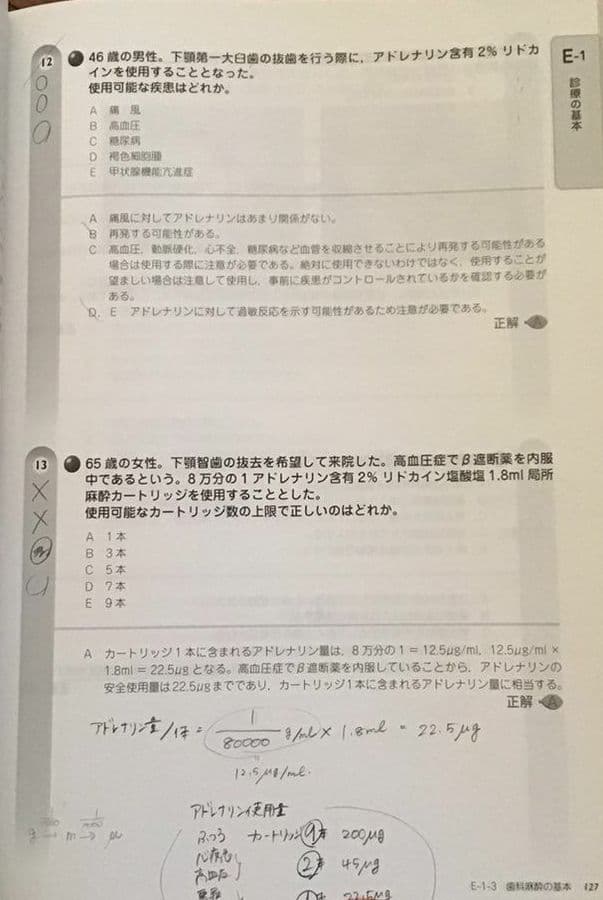 E-1
診療の基本
12
46歳の男性。下顎第一大臼歯の抜歯を行う際に，アドレナリン含有2％リドカ
インを使用することとなった。
使用可能な疾患はどれか。
A 痛風
B 高血圧
C 糖尿病
D 褐色細胞腫
E 甲状腺機能亢進症
A 痛風に対してアドレナリンはあまり関係がない。
B 再発する可能性がある。
C 高血圧，動脈硬化，心不全，糖尿病など血管を収縮させることにより再発する可能性がある
場合は使用する際に注意が必要である。絶対に使用できないわけではなく，使用することが
望ましい場合は注意して使用し，事前に疾患がコントロールされているかを確認する必要が
ある。
D，E アドレナリンに対して過敏反応を示す可能性があるため注意が必要である。
正解 A
13
65歳の女性。下顎智歯の抜去を希望して来院した。高血圧症でβ遮断薬を内服
中であるという。8万分の1アドレナリン含有2％リドカイン塩酸塩1.8ml局所
麻酔カートリッジを使用することとした。
使用可能なカートリッジ数の上限で正しいのはどれか。
A 1本
B 3本
C 5本
D 7本
E 9本
A カートリッジ1本に含まれるアドレナリン量は，8万分の1＝12.5μg/ml，12.5μg/ml×
1.8ml＝22.5μgとなる。高血圧症でβ遮断薬を内服していることから，アドレナリンの
安全使用量は22.5μgまでであり，カートリッジ1本に含まれるアドレナリン量に相当する。
正解 A
アドレナリン量/1本 = 1/80000 g/ml × 1.8ml = 22.5μg
12.5μg/ml.
アドレナリン使用量
ふつう カートリッジ 9本 200μg
心疾患
高血圧 2本 45μg
22.5μg
E-1-3 歯科麻酔の基本 127